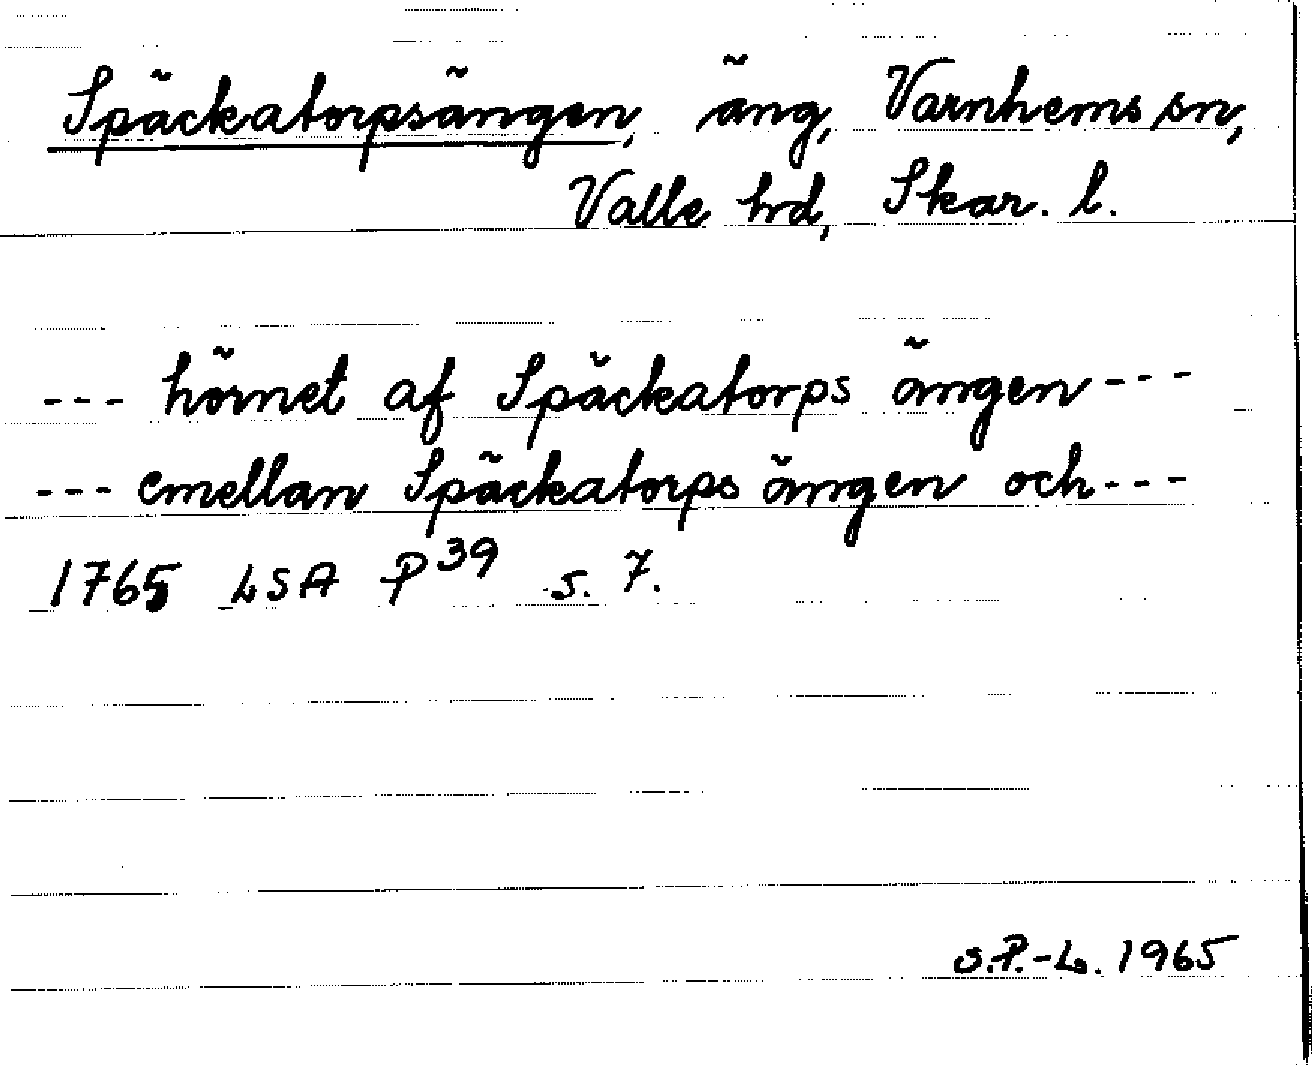 Späckatorpsängen, äng, Varnhems sn,
Valle hrd, Skar. l.
--- hörnet af Späckatorps ängen ---
--- emellan Späckatorps ängen och ---
1765 LSA P39 s. 7.
S.P.-L. 1965